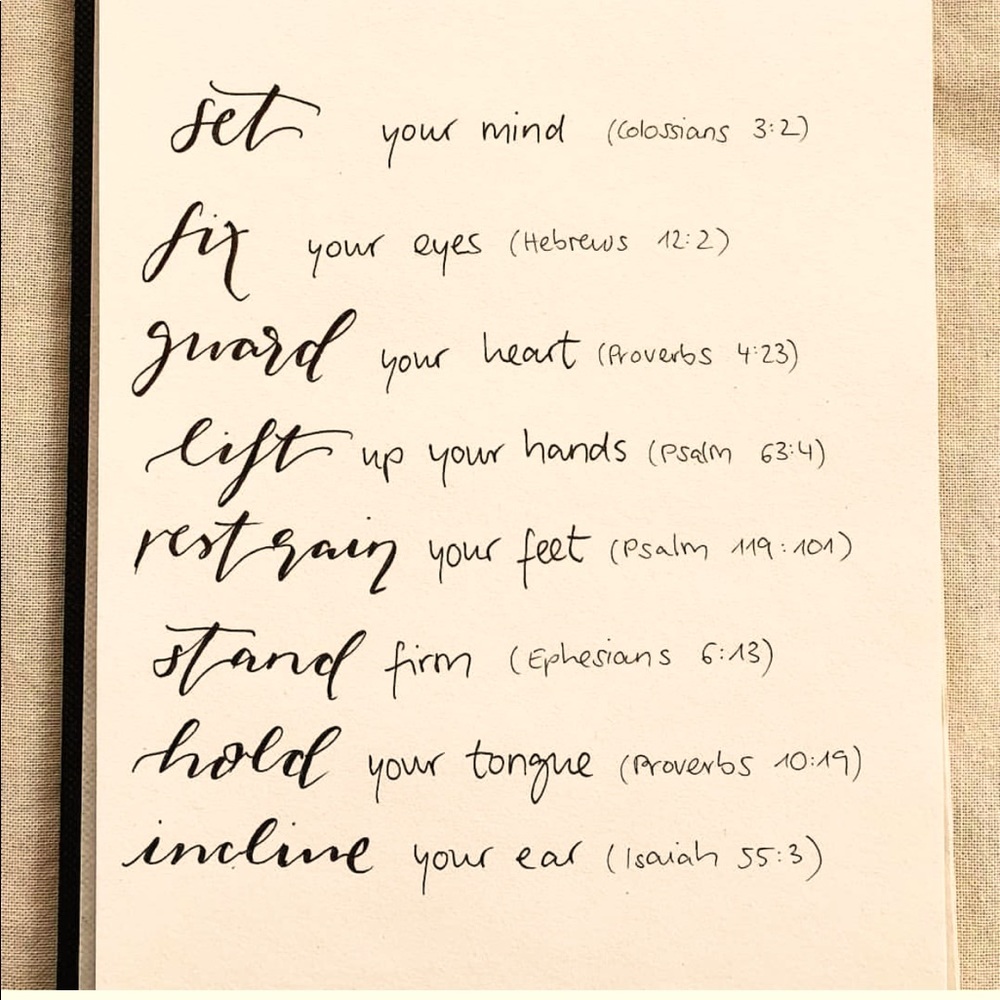 set your mind (Colossians 3:2)
fix your eyes (Hebrews 12:2)
guard your heart (Proverbs 4:23)
lift up your hands (Psalm 63:4)
restrain your feet (Psalm 119:101)
stand firm (Ephesians 6:13)
hold your tongue (Proverbs 10:19)
incline your ear (Isaiah 55:3)